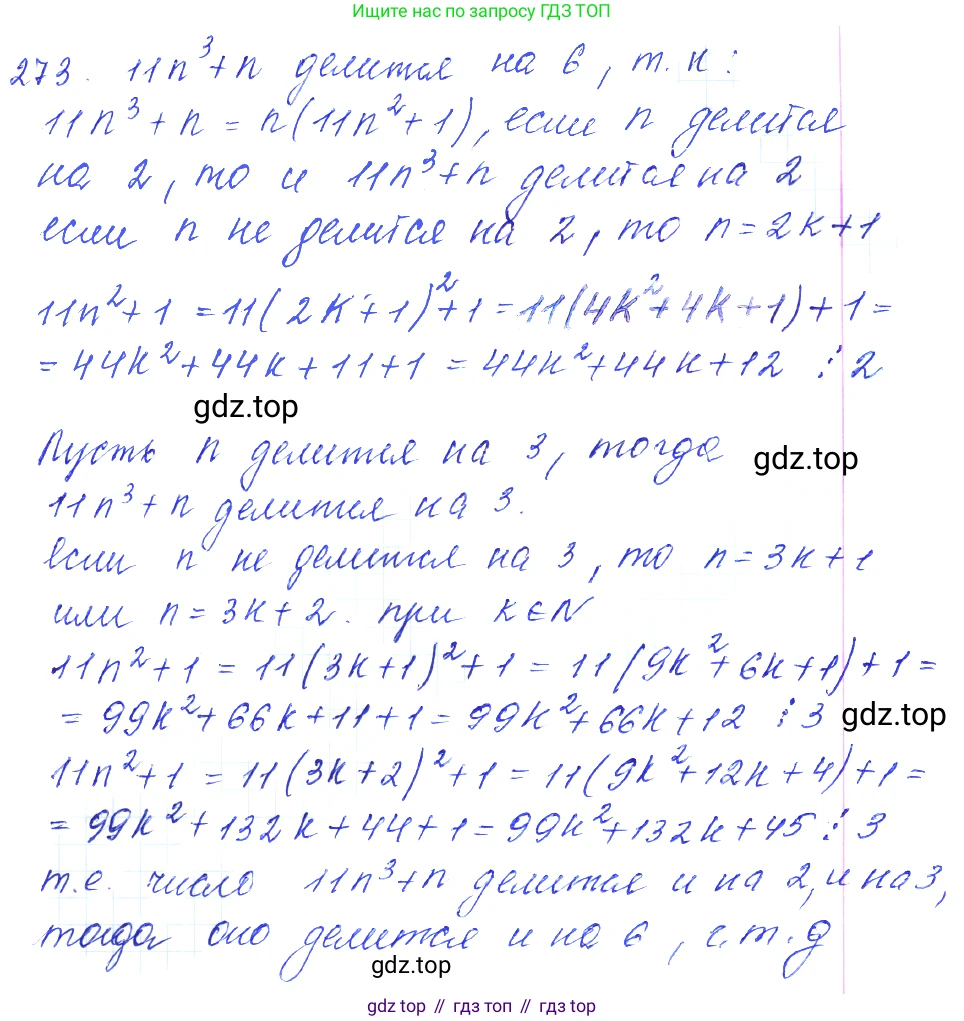 Ищите нас по запросу ГДЗ ТОП
273. 11n³+n делится на 6, т.к:
11n³+n = n(11n²+1), если n делится
на 2, то и 11n³+n делится на 2
если n не делится на 2, то n=2k+1
11n²+1 = 11(2k+1)²+1 = 11(4k²+4k+1)+1 =
= 44k²+44k+11+1 = 44k²+44k+12 ⋮ 2
gdz.top
Пусть n делится на 3, тогда
gdz.top
11n³+n делится на 3.
если n не делится на 3, то n=3k+1
или n=3k+2. при k∈N
11n²+1 = 11(3k+1)²+1 = 11(9k²+6k+1)+1 =
= 99k²+66k+11+1 = 99k²+66k+12 ⋮ 3
gdz.top
11n²+1 = 11(3k+2)²+1 = 11(9k²+12k+4)+1 =
= 99k²+132k+44+1 = 99k²+132k+45 ⋮ 3
т.е. число 11n³+n делится и на 2, и на 3,
тогда оно делится и на 6, ч.т.д
gdz.top
gdz.top // гдз топ // gdz.top